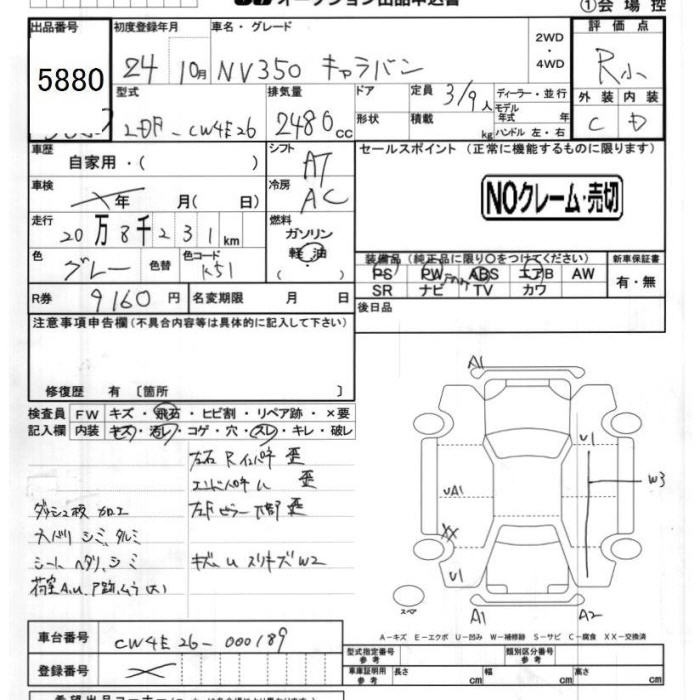 オークション出品申込書
①会場控
出品番号 初度登録年月 車名・グレード 2WD・4WD 評価点
5880 24 10月 NV350 キャラバン R小
型式 排気量 ドア 定員 3/9人 ディーラー・並行 外装 内装
LDF-CW4E26 2480cc 形状 積載 kg モデル年式 年 ハンドル 左・右 C D
車歴 自家用・( ) シフト AT セールスポイント (正常に機能するものに限ります)
車検 年 月( 日) 冷房 AC NOクレーム・売切
走行 20万8千231km 燃料 ガソリン 軽油
色 グレー 色替 色コード K51 装備品 (純正品に限り○をつけてください) 新車保証書
PS PW ABS エアB AW 有・無
R券 9160円 名変期限 月 日 SR ナビ TV カワ
注意事項申告欄(不具合内容等は具体的に記入して下さい) 後日品
修復歴 有 [箇所 ]
検査員 FW キズ・飛石・ヒビ割・リペア跡・×要
記入欄 内装 キズ・汚レ・コゲ・穴・スレ・キレ・破レ
左右Rインパネ 歪
エンドパネ U 歪
ダッシュ板 加工
天バリ シミ、タルミ
シート ヘタリ、シミ キズ、U スリキズ W2
荷室A.U.
A1
U1
W3
UA1
XX
U1
スペア
A1 A2
A-キズ E-エクボ U-凹み W-補修跡 S-サビ C-腐食 XX-交換済
車台番号 CW4E26-000189
登録番号
型式指定番号 参考 類別区分番号 参考
車庫証明用 参考 長さ cm 幅 cm 高さ cm